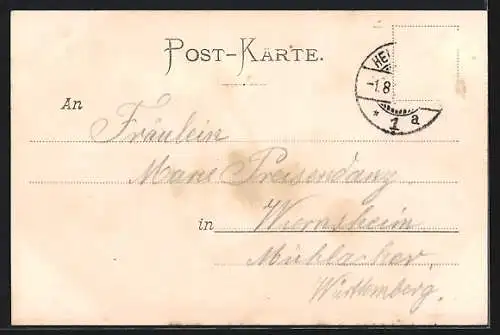 POST-KARTE.
HEI
-1.8
* 1 a
An
Fräulein
Marie Preisendanz
in Wiernsheim
Mühlacker,
Württemberg.